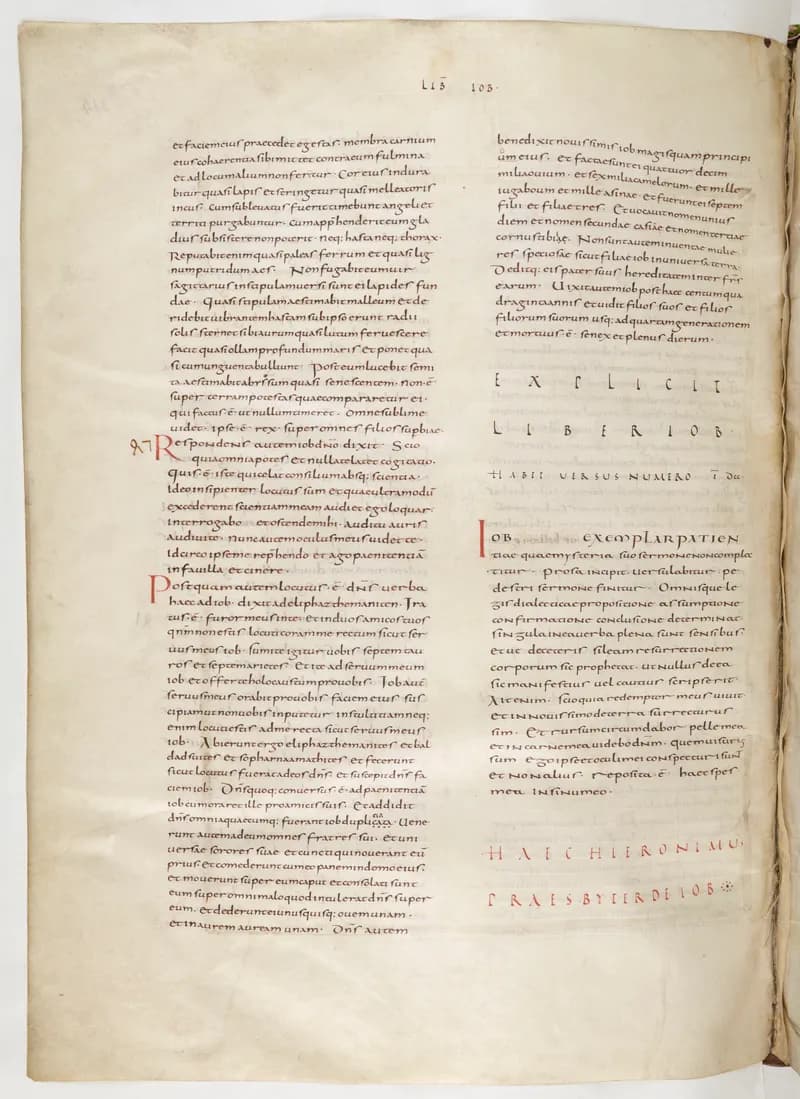 LIB IOB·
et faciem eius praecedet egestas. membra carnium
eius cohaerentia sibi mittet contra eum fulmina
et ad locum alium non fertur· Cor eius indura
bitur quasi lapis et stringetur quasi melleatoris
incus· Cum sublevatus fuerit timebunt angeli et
territi purgabuntur· cum appr̄henderit eum gla
dius subsistere non poterit· neq; hasta neq; thorax·
Reputabit enim quasi paleas ferrum et quasi lig
num putridum aes· Non fugabit eum vir
sagittarius in stipulam versi sunt ei lapides fun
dae· Quasi stipulam aestimabit malleum et de
ridebit vibrantem hastam sub ipso erunt radii
solis sternet sibi aurum quasi lutum fervescere
faciet quasi ollam profundum maris et ponet qua
si cum unguenta bulliunt· Post eum lucebit semi
ta aestimabit abyssum quasi senescentem· non ē
super terram potestas quae comparetur ei·
qui factus ē ut nullum timeret· Omne sublime
videt· ipse ē rex super omnes filios supbiae·
Respondens autem iob dn̄o dixit· Scio
quia omnia potes et nulla te latet cogitatio·
Quis ē iste qui celat consilium absq; scientia·
ideo insipienter locutus sum et quae ultra modū
excederent scientiam meam audi et ego loquar·
interrogabo et ostende mihi· auditu auris
audivi te· nunc autem oculus meus videt te·
idcirco ipse me repr̄hendo et ago paenitentiā
in favilla et cinere·
Postquam autem locutus ē dn̄s verba
haec ad iob· dixit ad eliphaz themaniten· Ira
tus ē furor meus in te et in duos amicos tuos
qn̄m non estis locuti coram me rectum sicut ser
vus meus iob· sumite igitur vobis septem tau
ros et septem arietes· Et ite ad servum meum
iob et offerte holocaustum pro vobis· Iob autē
servus meus orabit pro vobis faciem eius sus
cipiam ut non vobis inputetur in stultitiam neq;
enim locuti estis ad me recta sicut servus meus
iob· Abierunt ergo eliphaz themanites et bal
dad suites et sophar naamathites et fecerunt
sicut locutus fuerat ad eos dn̄s· et suscepit dn̄s fa
ciem iob· Dn̄s quoq; conversus ē ad paenitentiā
iob cum oraret ille pro amicis suis· Et addidit
dn̄s omnia quaecumq; fuerant iob duplicata· Vene
runt autem ad eum omnes fratres sui· et uni
versae sorores suae et cuncti qui noverant eū
prius et comederunt cum eo panem in domo eius·
et moverunt super eum caput et consolati sunt
eum super omni malo quod intulerat dn̄s super
eum· et dederunt ei unusquisq; ovem unam·
et inaurem auream unam· Dn̄s autem
benedixit novissimis iob magis quam principi
um eius· et facta sunt ei quattuor decim
milia ovium· et sex milia camelorum· et mille
iuga boum et mille asinae· et fuerunt ei septem
filii et filiae tres· Et vocavit nomen unius
diem et nomen secundae casiae et nomen tertiae
cornu stibii· Non sunt autem inventae mulie
res speciosae sicut filiae iob in universa terra·
Deditq; eis pater suus hereditatem inter fr̄s
earum· Vixit autem iob post haec centum qua
draginta annis et vidit filios suos et filios
filiorum suorum usq; ad quartam generationem
et mortuus ē· senex et plenus dierum·
EXPLICIT
LIBER IOB·
HABET VERSUS NUMERO
IOB EXEMPLAR PATIEN
tiae quae mysteria suo sermone non complec
titur· Prosa incipit versu labitur pe
destri sermone finitur· Omnisque le
gis dialecticae propositione assumptione
confirmatione conclusione determinat
singula in ea verba plena sunt sensibus
et ut de ceteris sileam resurrectionem
corporum sic prophetat· ut nullus de ea
sic manifestius vel cautius scripserit
Ait enim· scio quia redemptor meus vivit
et in novissimo de terra surrecturus
sim· Et rursum circumdabor pelle mea
et in carne mea videbo dn̄m· quem visurus
sum ego ipse et oculi mei conspecturi sunt
et non alius· reposita ē haec spes
mea in sinu meo·
HAEC HIERONIMUS
PRAESBYTER DE IOB